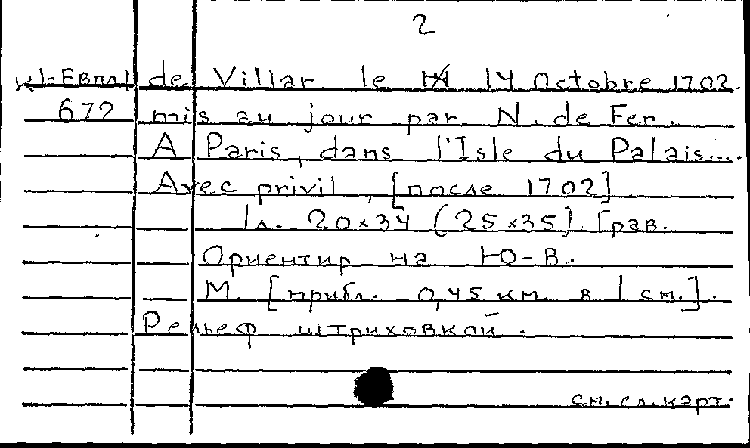 2
de Villar le 14 Octobre 1702.
672 mis au jour par N. de Fer.
A Paris, dans l'Isle du Palais...
Avec privil, [после 1702]
1 л. 20×34 (25×35). Грав.
Ориентир на Ю-В.
М. [прибл. 0,45 км. в 1 см.].
Рельеф штриховкой.
см. сл. карт.